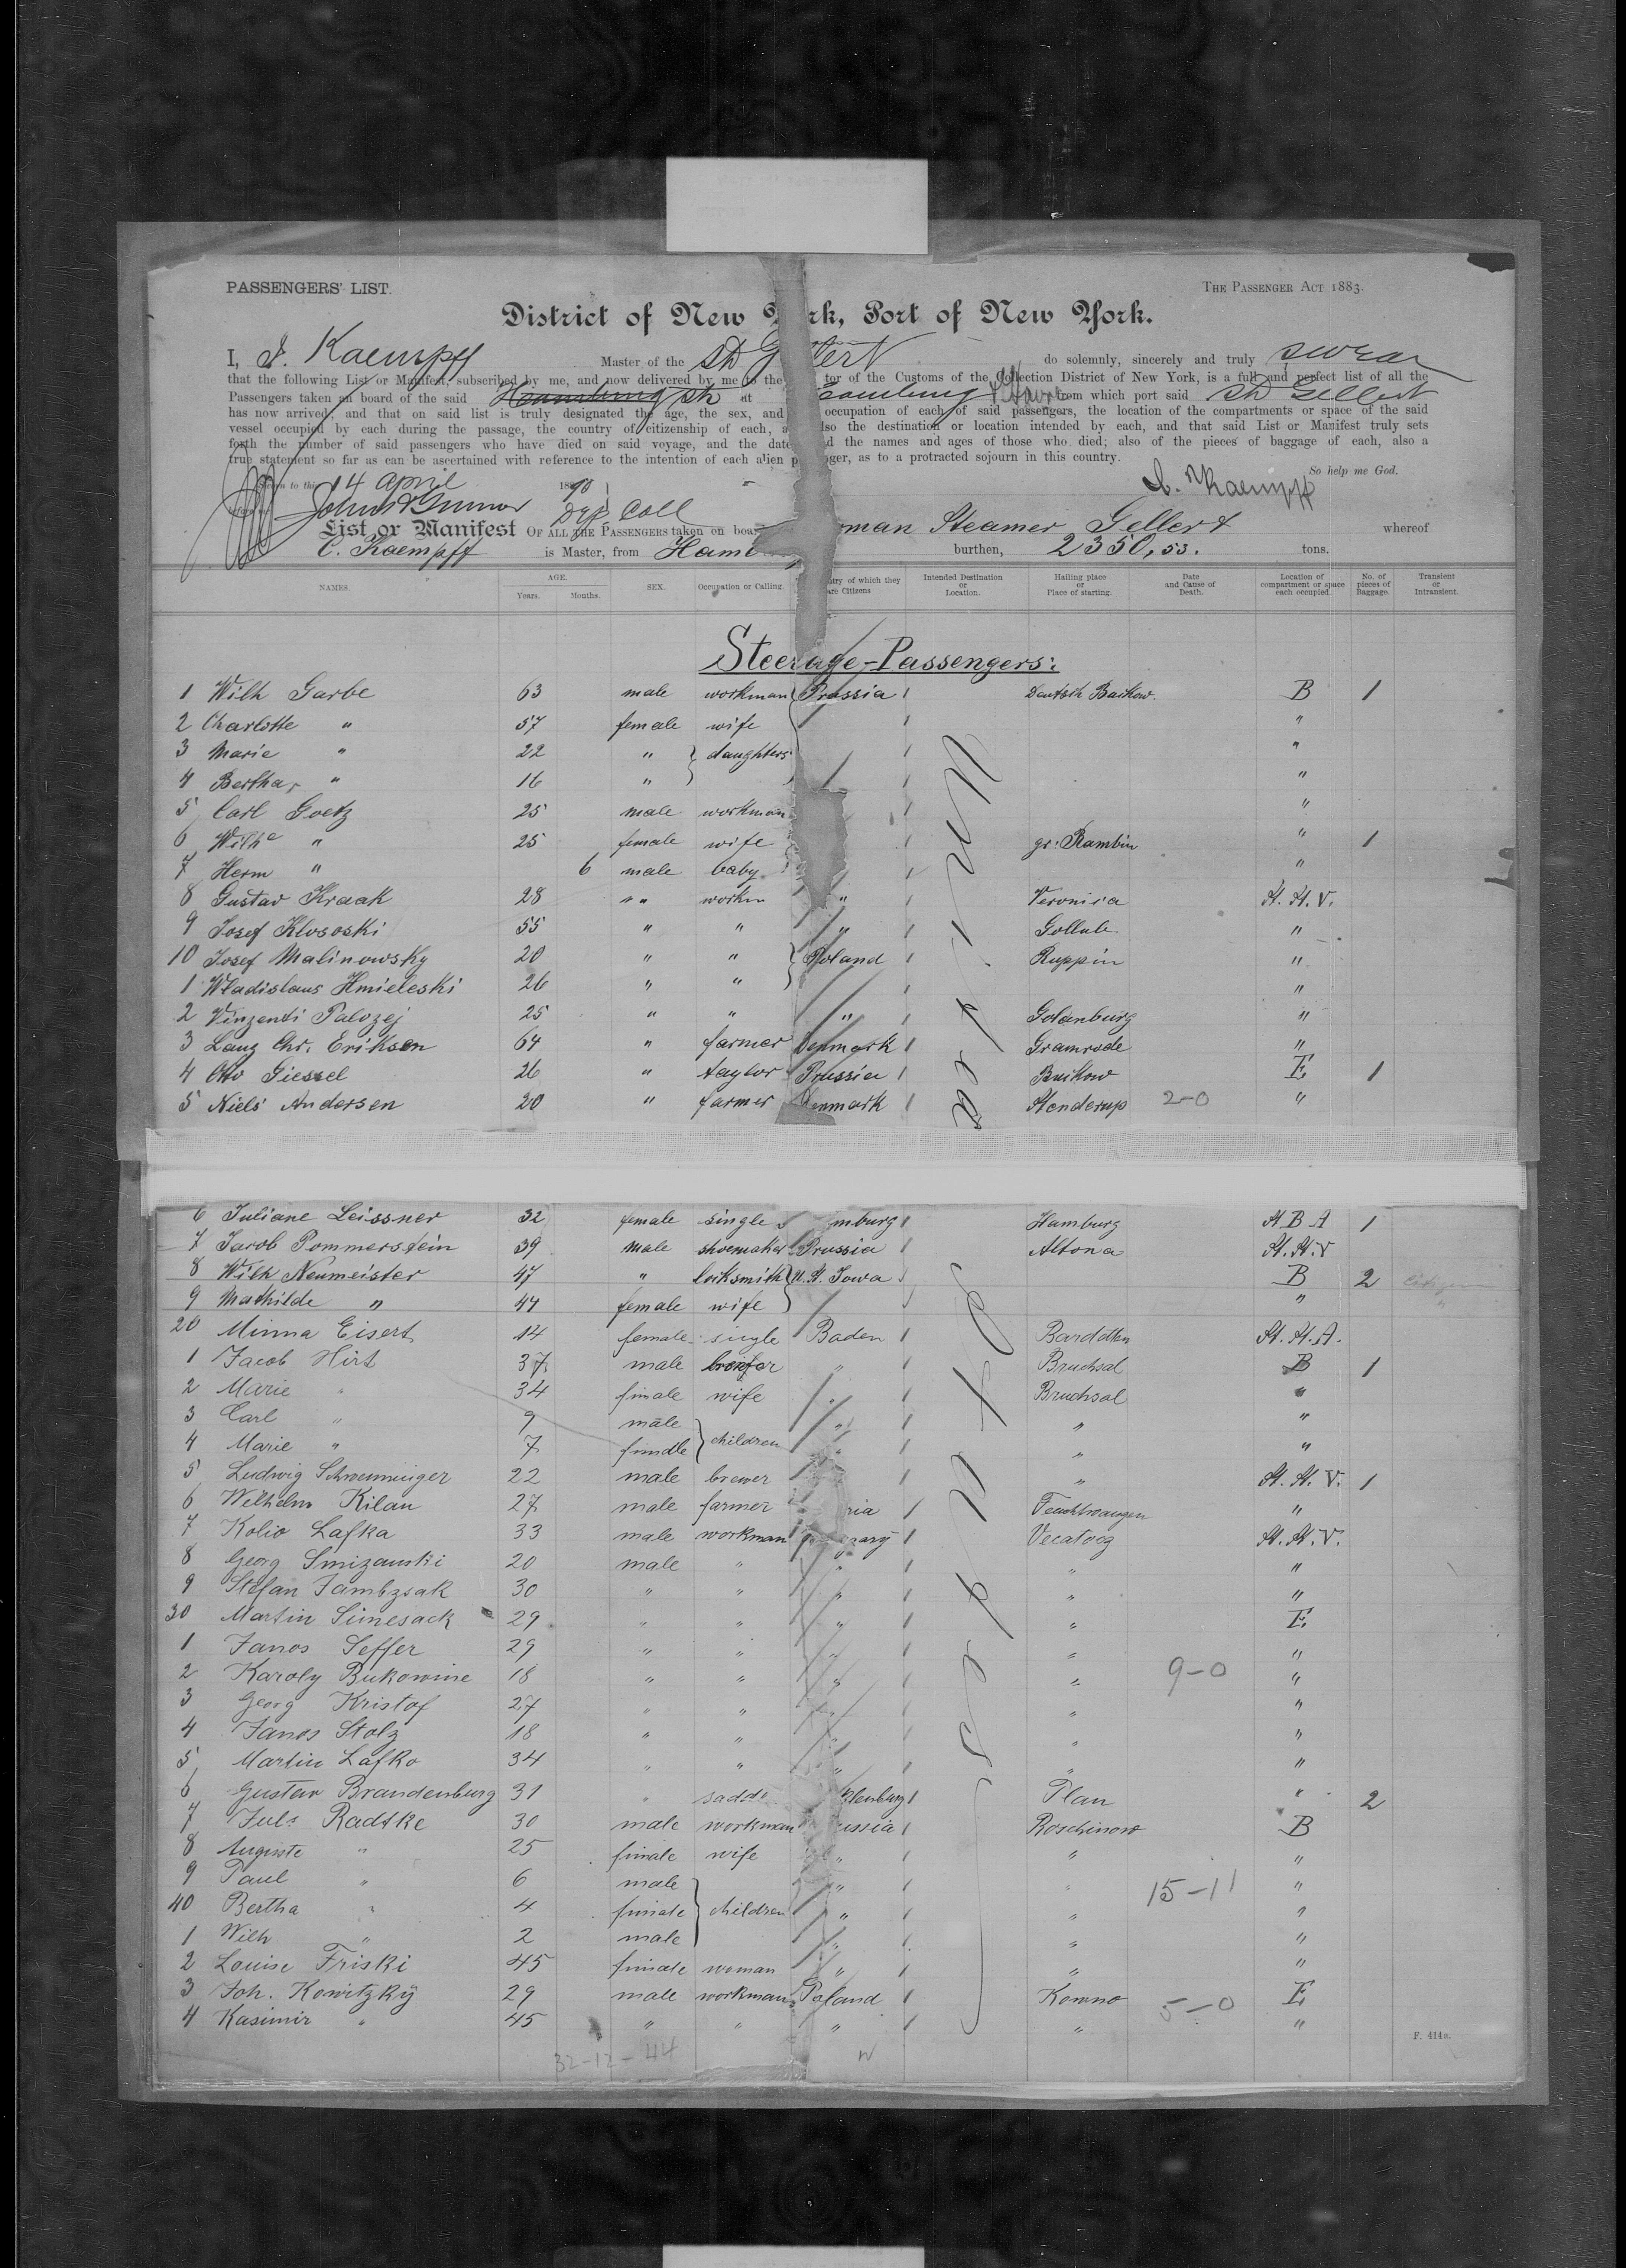 PASSENGERS' LIST.
THE PASSENGER ACT 1883.
District of New York, Port of New York.
I, Kaempff Master of the SS Gellert do solemnly, sincerely and truly swear
that the following List or Manifest, subscribed by me, and now delivered by me to the tor of the Customs of the Collection District of New York, is a full and perfect list of all the
Passengers taken on board of the said at from which port said SS Gellert
has now arrived, and that on said list is truly designated the age, the sex, and occupation of each of said passengers, the location of the compartments or space of the said
vessel occupied by each during the passage, the country of citizenship of each, a lso the destination or location intended by each, and that said List or Manifest truly sets
forth the number of said passengers who have died on said voyage, and the date d the names and ages of those who died; also of the pieces of baggage of each, also a
true statement so far as can be ascertained with reference to the intention of each alien p ger, as to a protracted sojourn in this country.
So help me God.
Sworn to this 14 April 1890
Kaempff
Dep. Coll
List or Manifest OF ALL THE PASSENGERS taken on boa rman Steamer Gellert whereof
C. Kaempff is Master, from Hamb burthen, 2350,53. tons.
NAMES. AGE. Years. Months. SEX. Occupation or Calling. ntry of which they are Citizens Intended Destination or Location. Hailing place or Place of starting. Date and Cause of Death. Location of compartment or space each occupied. No. of pieces of Baggage. Transient or Intransient.
Steerage-Passengers:
1 Wilh Garbe 63 male workman Prussia Deutsch Buckow. B 1
2 Charlotte " 57 female wife "
3 Marie " 22 " daughters "
4 Bertha " 16 " "
5 Carl Goetz 25 male workman "
6 Wilhe " 25 female wife gr. Rambin " 1
7 Herm " 6 male baby "
8 Gustav Kraak 28 " workm " Veronica St. St. V.
9 Josef Klososki 55 " " " Gollub "
10 Josef Malinowsky 20 " " Poland Ruppin "
1 Wladislaus Hmieleski 26 " " "
2 Vinzenti Palozej 25 " " " Golanburg "
3 Lauz Chr. Eriksen 64 " farmer Denmark Gramrode "
4 Otto Giessel 26 " taylor Prussia Buckow E 1
5 Niels Andersen 20 " farmer Denmark Stenderup 2-0 "
6 Juliane Leissner 32 female single mburg Hamburg St B A 1
7 Jacob Pommerstein 39 male shoemaker Prussia Altona St. St. V
8 Wilh Neumeister 47 " locksmith U.S. Iowa B 2
9 Mathilde " 47 female wife "
20 Minna Eisert 14 female single Baden St. St. A.
1 Jacob Hirt 37 male " Bruchsal B 1
2 Marie " 34 female wife " Bruchsal "
3 Carl " 9 male children " " "
4 Marie " 7 female " " "
5 Ludwig Schwenninger 22 male brewer " St. St. V. 1
6 Wilhelm Kilau 27 male farmer ria Feuchtwangen "
7 Kolio Lafka 33 male workman gary Vecatocz St. St. V.
8 Georg Smizanski 20 male " " " "
9 Stefan Jambzsak 30 " " " " "
30 Martin Simesack 29 " " " " E.
1 Janos Seffer 29 " " " " "
2 Karoly Bukowine 18 " " " " 9-0 "
3 Georg Kristof 27 " " " "
4 Janos Stolz 18 " " " "
5 Martin Lafko 34 " " " " "
6 Gustav Brandenburg 31 " klenburg Plan " 2
7 Juls Radtke 30 male workman ussia Roschinow B
8 Auguste " 25 female wife " " "
9 Paul " 6 male children " " 15-11 "
40 Bertha " 4 female " " "
1 Wilh " 2 male " " "
2 Louise Friski 45 female woman " " "
3 Joh. Kowitzky 29 male workman Poland Kowno 5-0 E
4 Kasimir " 45 " " " " "
32-12-44
F. 414a.